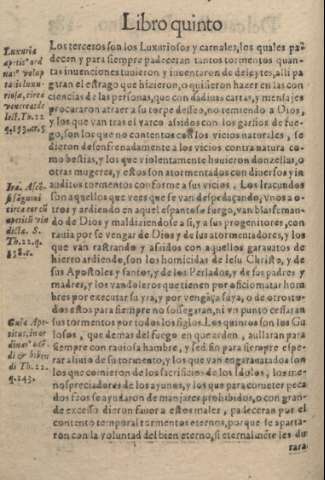 Libro quinto
Los terceros son los Luxuriosos y carnales, los quales padecen
y para siempre padeceran tantos tormentos quantas
inuenciones tuuieron y inuentaron de deleytes, alli pagaran
el estrago que hizieron, o quisieron hazer en las conciencias
de las personas, que con dadiuas cartas, y mensajes
procuraron atraer a su torpe desseo, no temiendo a Dios,
y los que van tras el varco asidos con los garfios de fuego,
son los que no contentos con los vicios naturales, se
dieron desenfrenadamente a los vicios contra natura como
bestias, y los que violentamente huuieron donzellas, o
otras mugeres, y estos son atormentados con diuersos y inauditos
tormentos conforme a sus vicios. Los Iracundos
son aquellos que veys que se van despedaçando, vnos a otros
y ardiendo en aquel espantoso fuego, van blasfemando
de Dios y maldiziendose a si, y a sus progenitores, con
rauia por se vengar de Dios y de las atormentadores, y los
que van rastrando y asidos con aquellos garauatos de
hierro ardiendo, son los homicidas de Iesu Christo, y de
sus Apostoles y santos, y de los Perlados, y de sus padres y
madres, y los vandoleros que tienen por oficio matar hombres
por executar su yra, y por vengãça suya, o de otros todos
estos para siempre no sossegaran, ni vn punto cessaran
sus tormentos por todos los siglos. Los quintos son los Gulosos,
que demas del fuego en que arden, aullaran para
siempre con rauiosa hambre, y sed sin para siempre esperar
aliuio de su tormento, y los que van engarauatados son
los que comieron de los sacrificios de los Idolos, los menospreciadores
de los ayunos, y los que para cometer pecados
son los se ayudaron de manjares prohibidos, o con grande
excesso dieron fauor a estos males, padeceran por el
contento temporal tormentos eternos, porque se apartaron
con la voluntad del bien eterno, si eternal no les
rara
Luxuria
Th. 22
q.153. art.3
Ira.
dicta. S.
Th. 22. q.
158.
Gula
di Th. 22.
q.143.